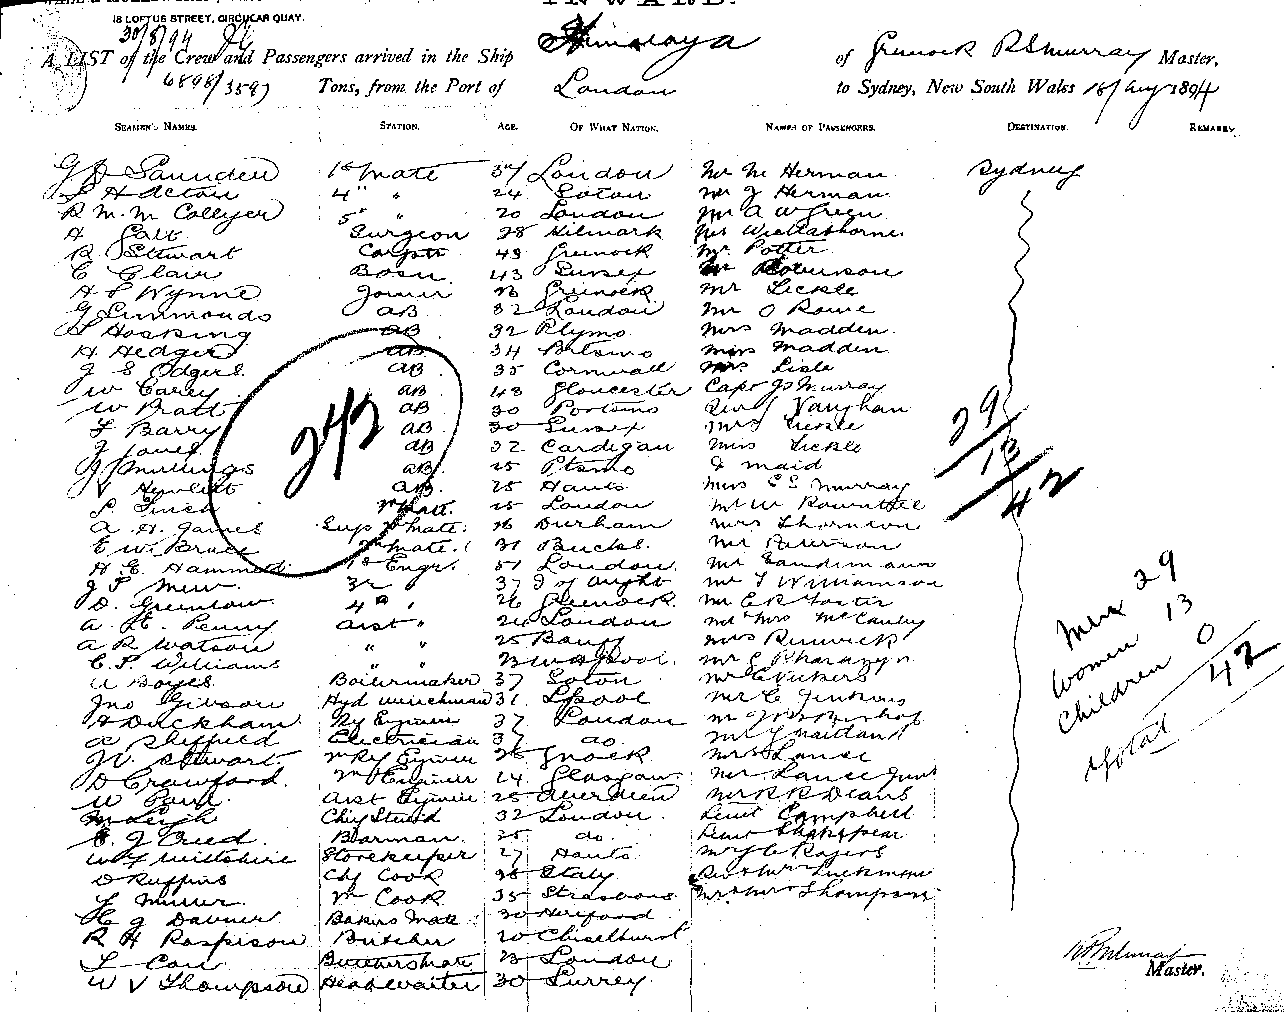 INWARD.
18 LOFTUS STREET, CIRCULAR QUAY.
30/8/94
A LIST of the Crew and Passengers arrived in the Ship Himalaya of Greenock R S Murray Master,
6898/3597 Tons, from the Port of London to Sydney, New South Wales 18/Aug/1894
SEAMEN'S NAMES. STATION. AGE. OF WHAT NATION. NAMES OF PASSENGERS. DESTINATION. REMARKS
Saunders 1st Mate 37 London Mr M Herman Sydney
H Acton 4" " 24 Soton Mr J Herman
R M. M Collyer 5" " 20 London Mr A W Green
A Galt Surgeon 28 Kilmark
R Stewart Carptr 49 Greenock Mr Potter
C Clair Bosn 43 Sussex Mr Robinson
H S Wynne Joiner 26 Greenock Mr Tickle
G Simmonds AB 32 London Mr O Rowe
S Hosking AB 32 Plymo Mrs Madden
H Hedger AB 34 Miss Madden
J S Odgers AB 35 Cornwall Mrs Lisle
W Carey AB 43 Gloucester Capt Murray
W Pratt AB 30 Portsmo Vaughan
F Barry AB 30 Sussex Mrs Tickle
J Jones AB 32 Cardigan Miss Tickle
Mullings AB 25 Ptsmo & maid
V Hewlett AB 25 Hants Miss Murray
S. Finch Matt. 25 London Mr W Rowntree
A. H. James Sup Mate. 26 Durham Mrs Thornton
E W. Bruce Mate. 31 Bucks. Mr Paterson
H E. Hammett 1st Engr. 51 London. Mr Sandimann
J P Mew 3r " 37 I of Wight Mr T Williamson
D. Greenlow 4th " 26 Greenock. Mr E R Foster
A. E. Penny Asst " 26 London Mr & Mrs McCauley
A R Watson " " 25 Banff Mrs Renwick
C. P. Williams " " Mr
W Boyes Boilermaker 37 Soton Mr Vickers
Jno Gibson Hyd winchman 31 Lpool Mr C Jenkins
H Duckham Ry Engineer 37 London
A Sheffield Electrician 37 do. Mr Maitland
W. Stewart Engineer 26 Gnock Mrs Lance
D Crawford. Engineer 24. Glasgow Mr Lance Junr
W Paul. Asst Engineer 25 Aberdeen Mr R R Deans
M Leigh Chf Stewd 32 London Lieut Campbell
E. J Creed Barman. 25 do. Lieut Shakespear
W J Wiltshire Storekeeper 27 Hants Mr Rogers
O Ruffins Chf Cook 36 Italy Luckman
F Muller. Cook 35 Strasbourg Mr & Mrs Thompson
H J Davner Bakers Mate 30 Hereford
R H Raspison Butcher 20 Chiselhurst
F Carr Butchers Mate 23 London
W V Thompson Headwaiter 30 Surrey
242
29
13
42
Men 29
Women 13
Children 0
Total 42
R S Murray
Master.